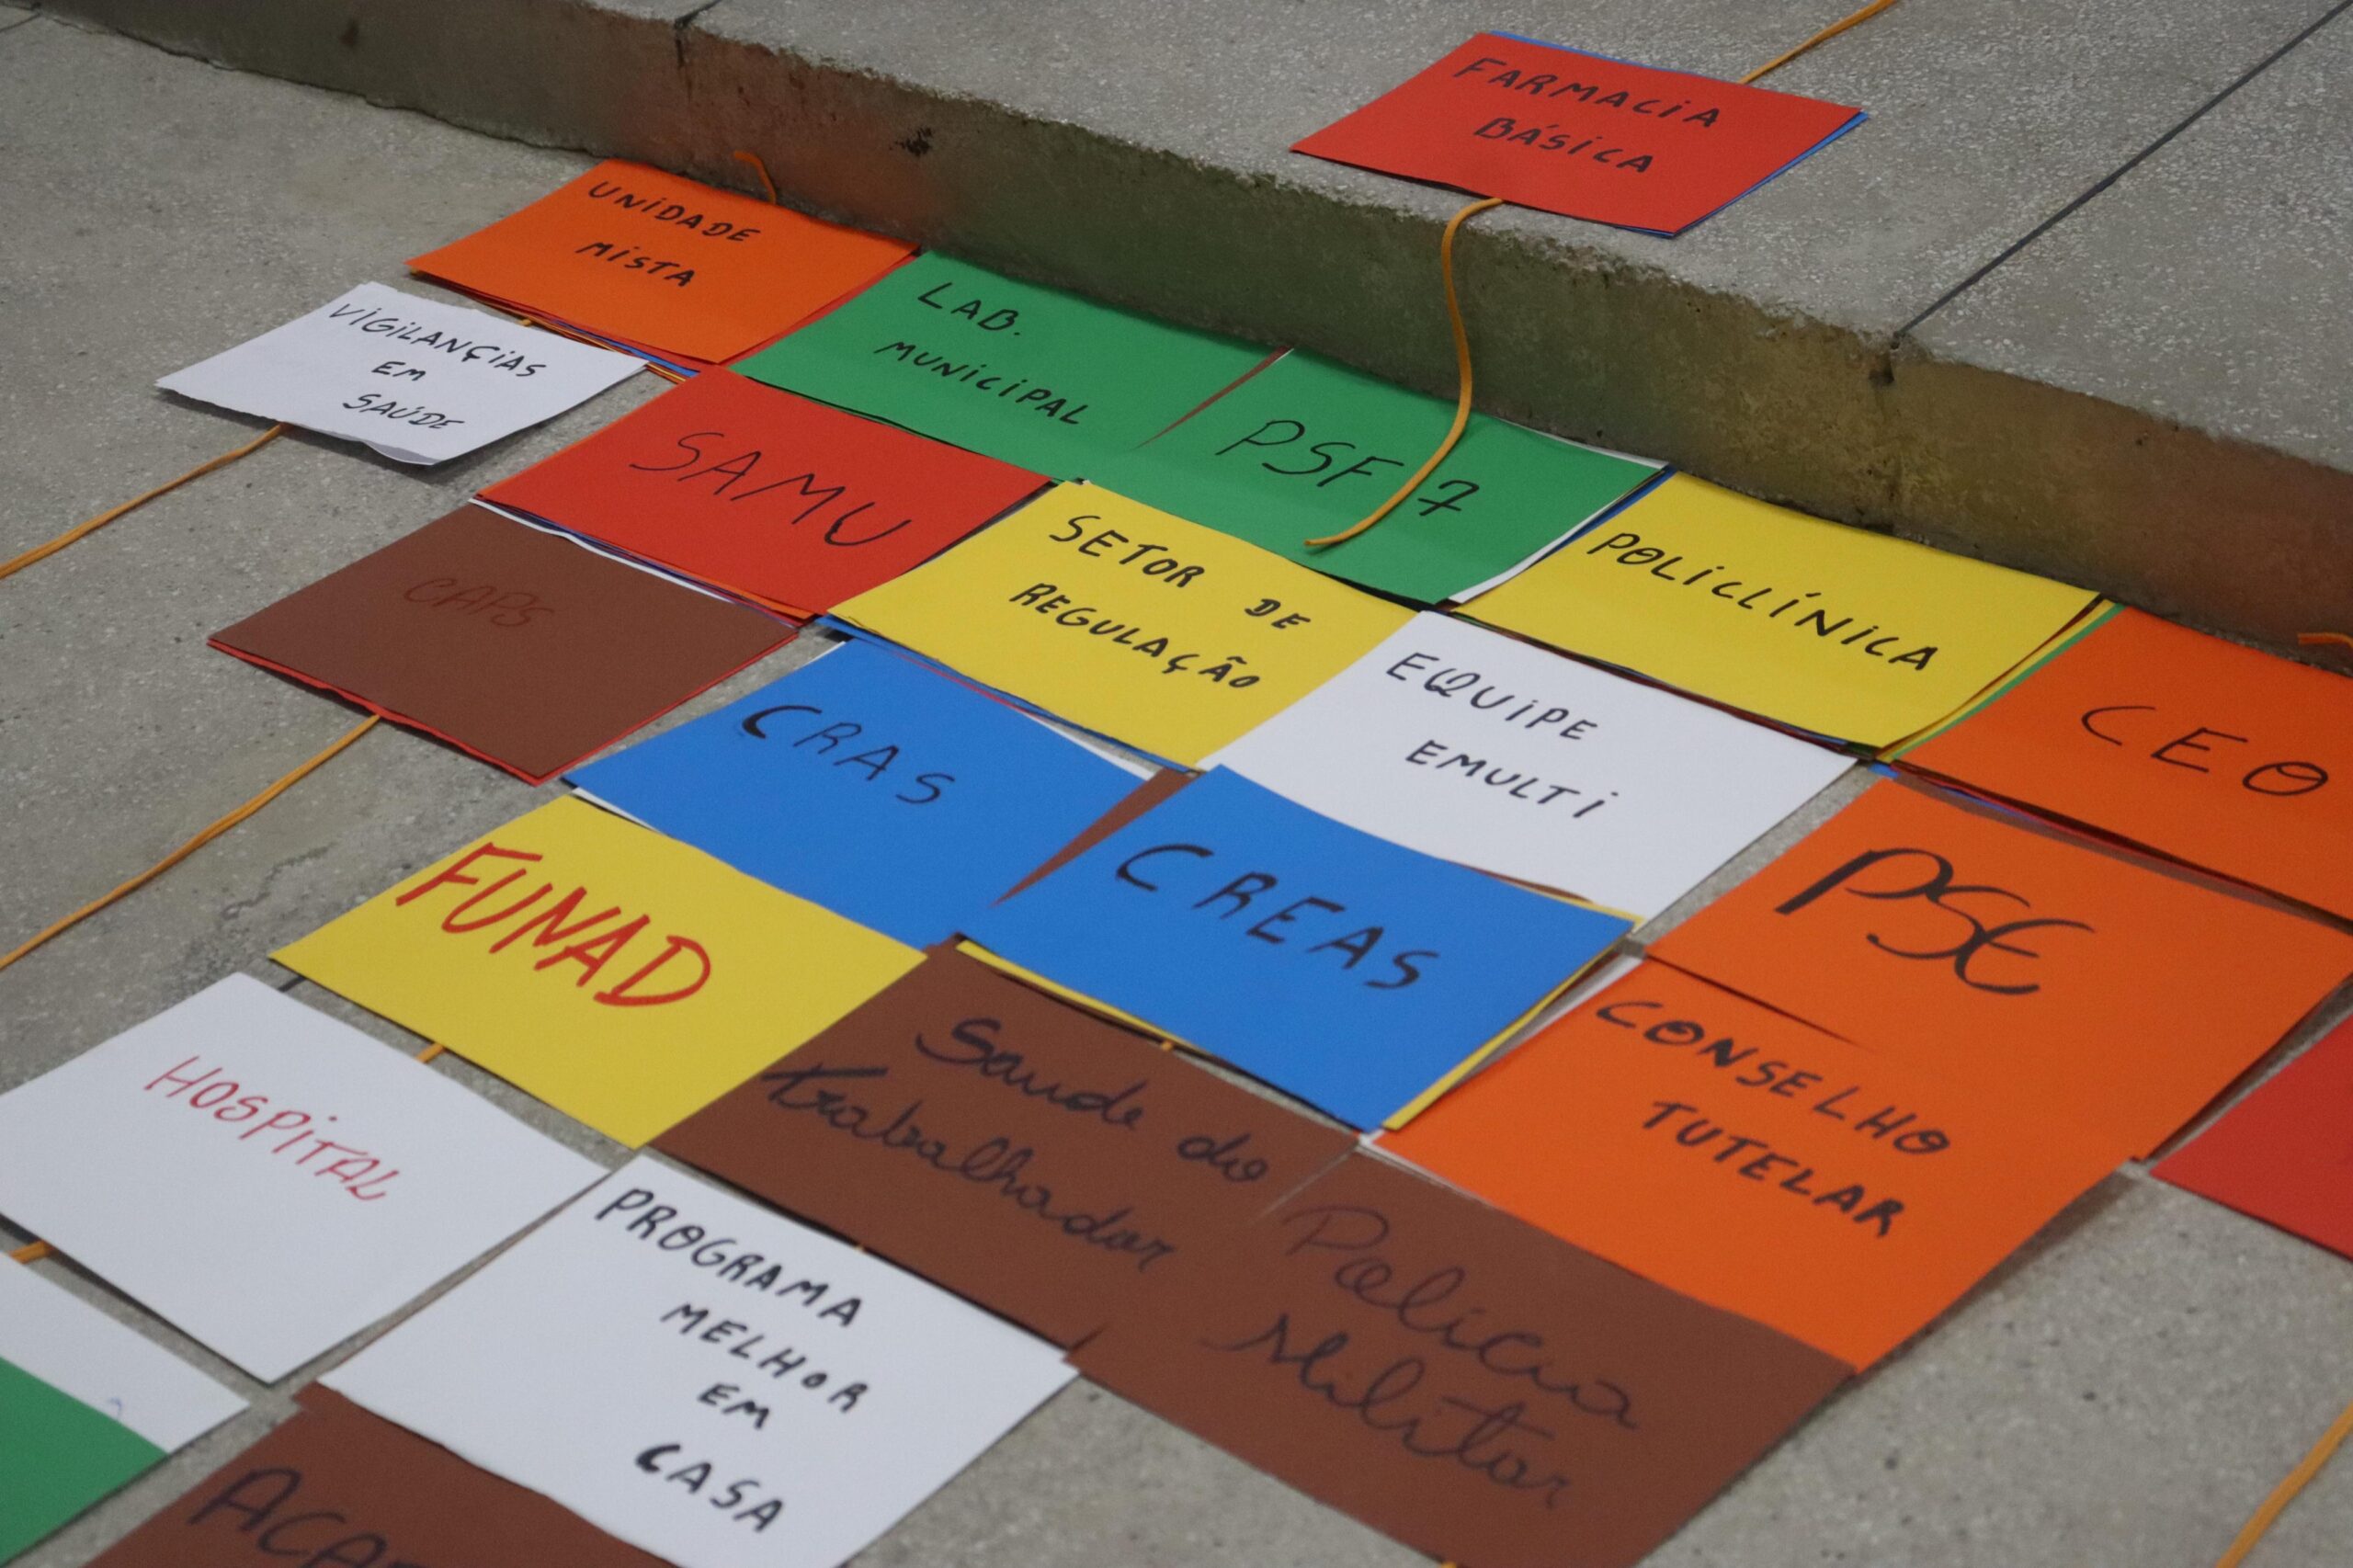 FARMACIA
BÁSICA
UNIDADE
MISTA
VIGILANÇIAS
EM
SAÚDE
LAB.
MUNICIPAL
PSF 7
SAMU
POLICLÍNICA
SETOR DE
REGULAÇÃO
CAPS
CEO
EQUIPE
EMULTI
CRAS
PSE
CREAS
FUNAD
CONSELHO
TUTELAR
Saude do
trabalhador
HOSPITAL
Policia
Militar
PROGRAMA
MELHOR
EM
CASA